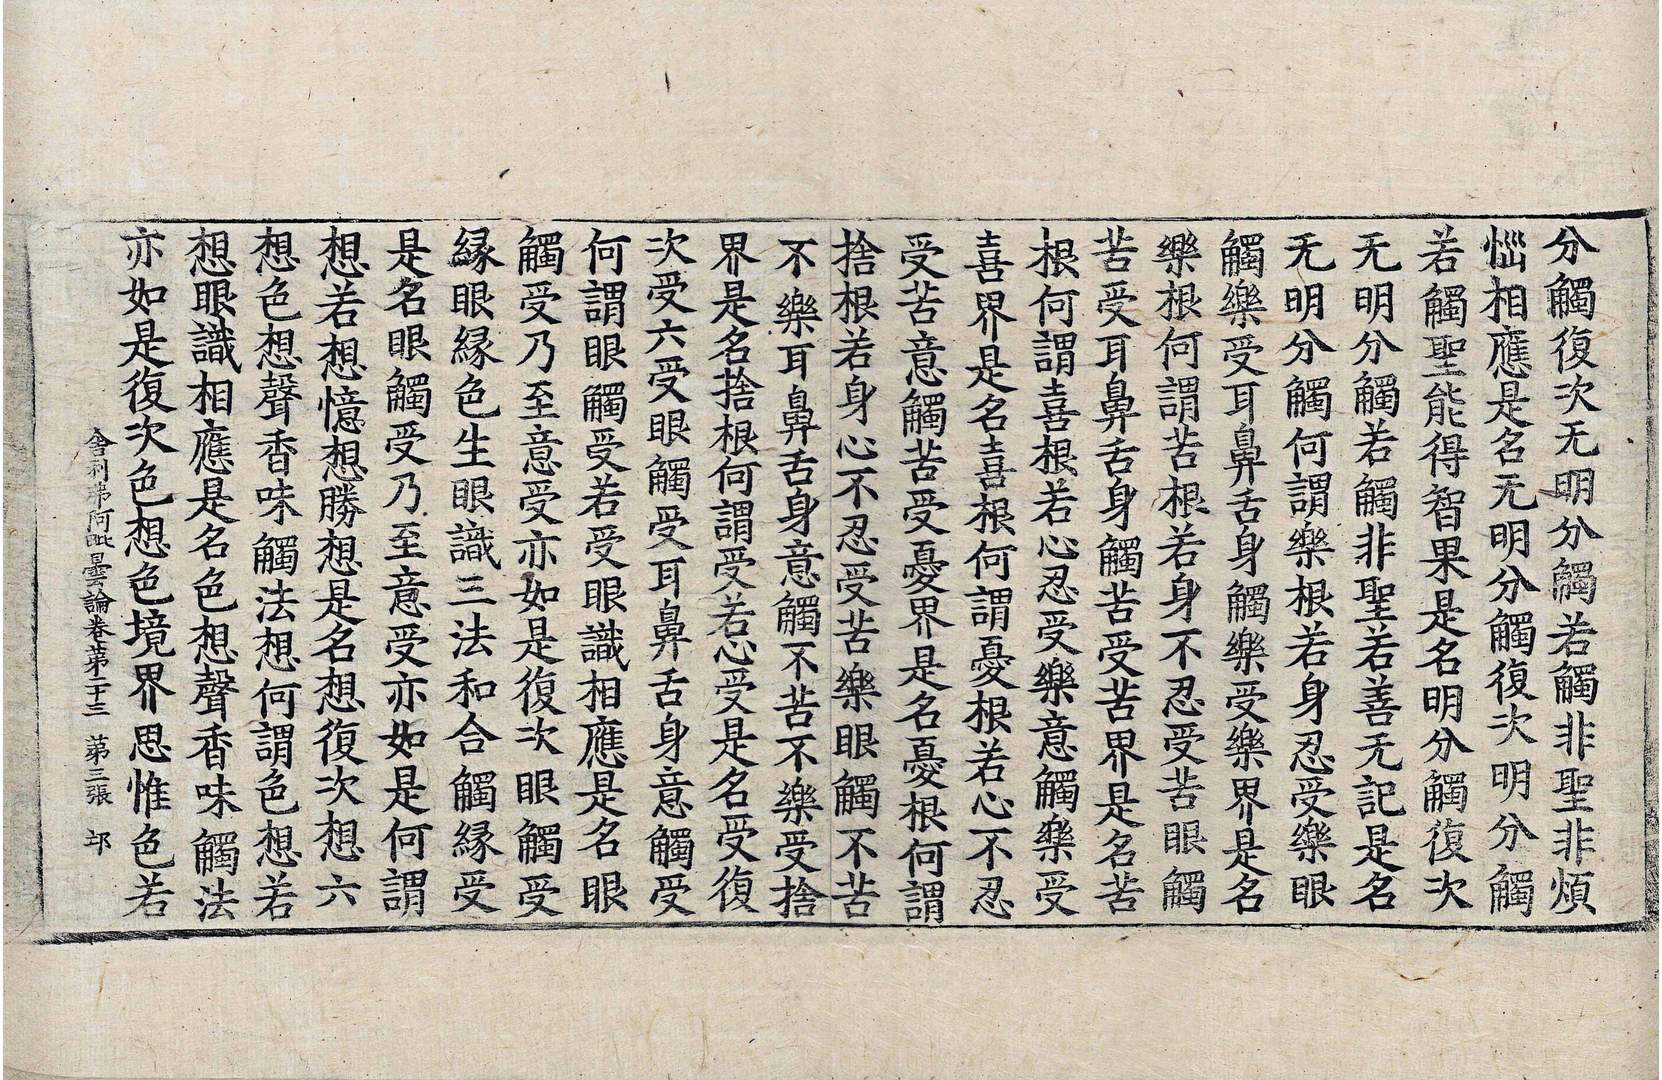 分觸復次无明分觸若觸非聖非煩
惱相應是名无明分觸復次明分觸
若觸聖能得智果是名明分觸復次
无明分觸若觸非聖若善无記是名
无明分觸何謂樂根若身忍受樂眼
觸樂受耳鼻舌身觸樂受樂界是名
樂根何謂苦根若身不忍受苦眼觸
苦受耳鼻舌身觸苦受苦界是名苦
根何謂喜根若心忍受樂意觸樂受
喜界是名喜根何謂憂根若心不忍
受苦意觸苦受憂界是名憂根何謂
捨根若身心不忍受苦樂眼觸不苦
不樂耳鼻舌身意觸不苦不樂受捨
界是名捨根何謂受若心受是名受復
次受六受眼觸受耳鼻舌身意觸受
何謂眼觸受若受眼識相應是名眼
觸受乃至意受亦如是復次眼觸受
緣眼緣色生眼識三法和合觸緣受
是名眼觸受乃至意受亦如是何謂
想若想憶想勝想是名想復次想六
想色想聲香味觸法想何謂色想若
想眼識相應是名色想聲香味觸法
亦如是復次色想色境界思惟色若
舍利弗阿毗曇論卷第二十三 第三張 邙